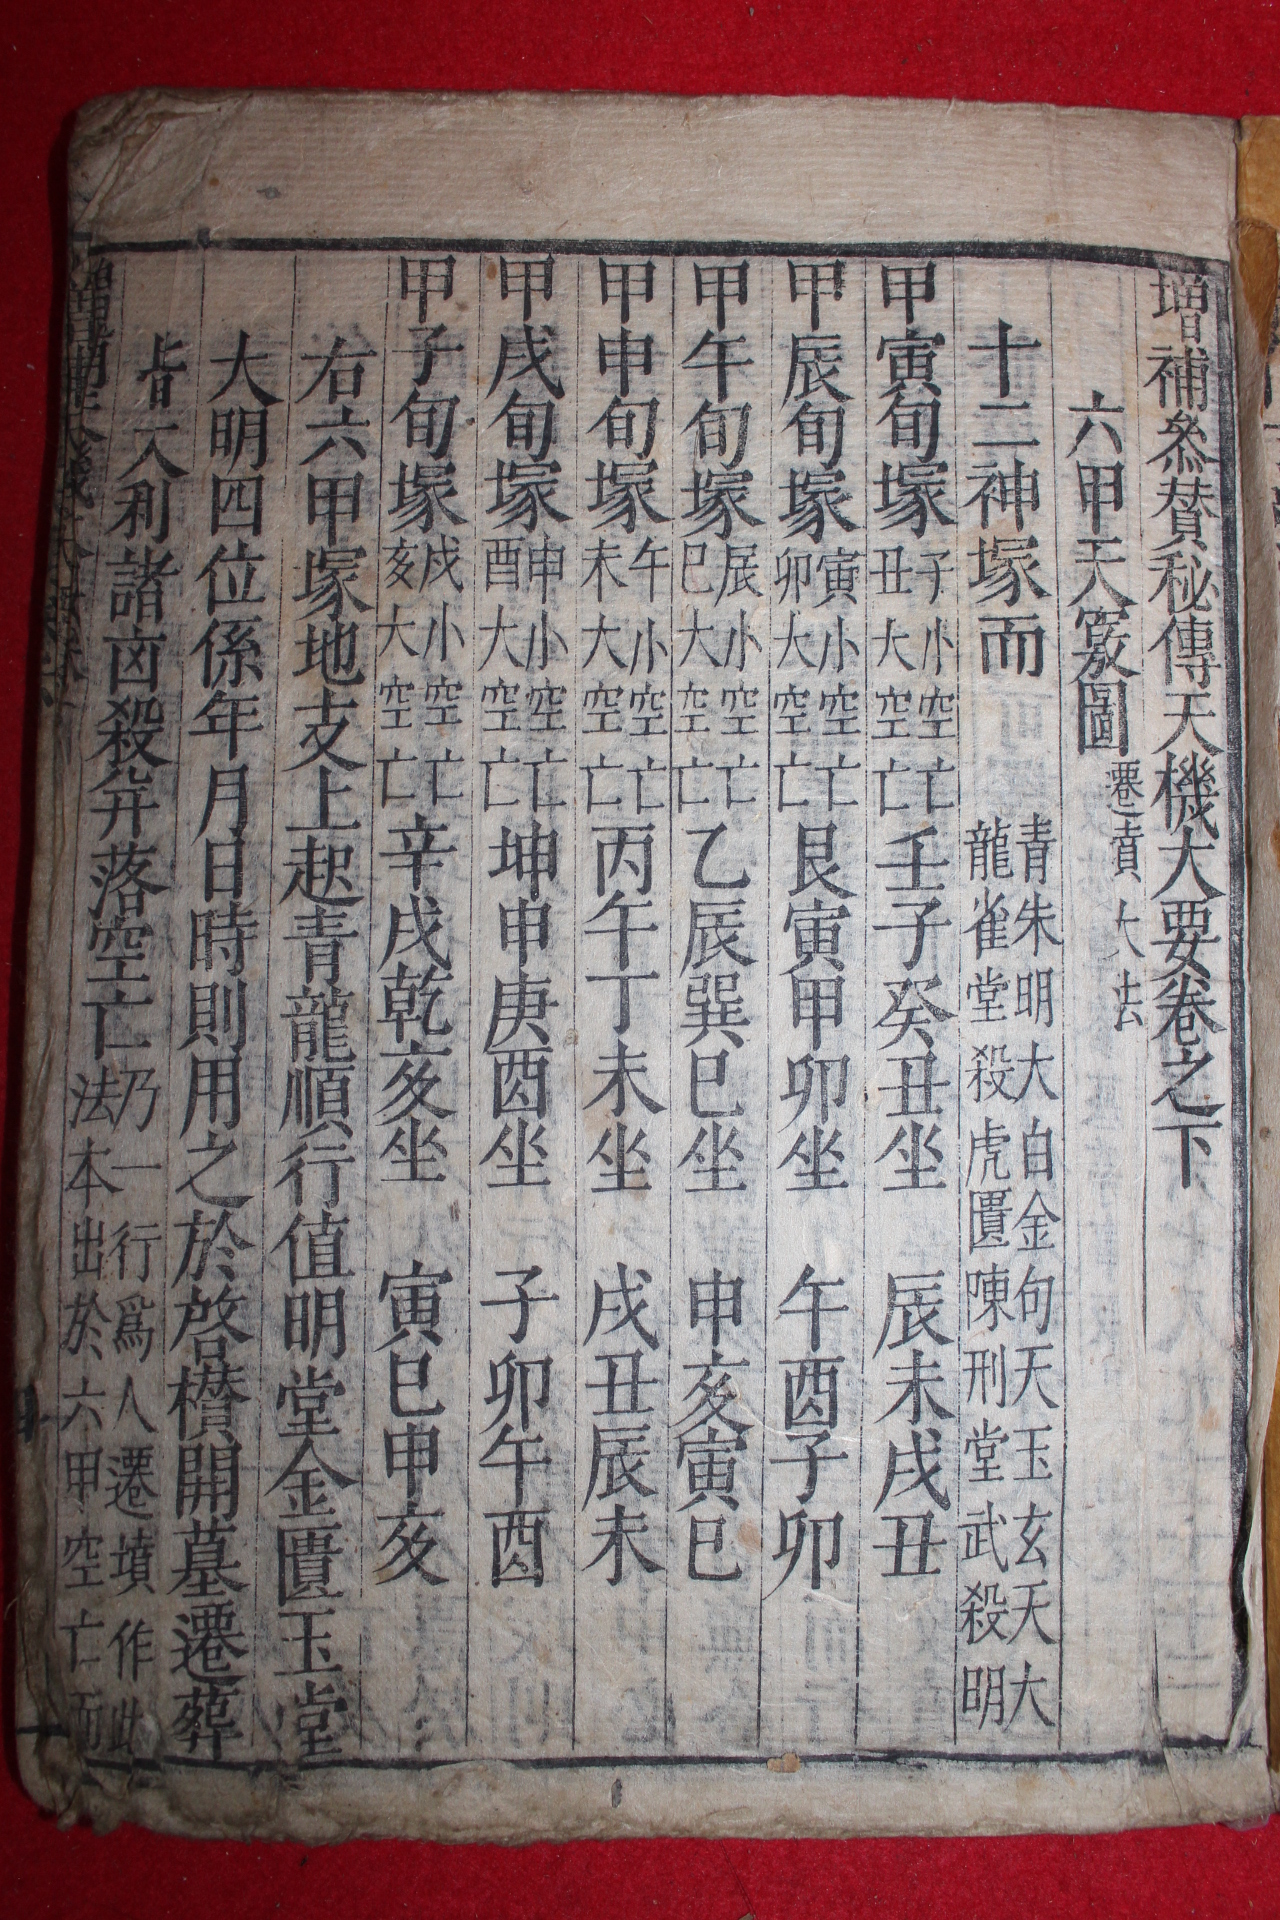 增補叅賛秘傳天機大要卷之下
六甲天竅圖 遷墳大法
十二神塚而 青朱明大白金句天玉玄天大
龍雀堂殺虎匱陳刑堂武殺明
甲寅旬塚 子小空亡 丑大空亡 壬子癸丑坐 辰未戌丑
甲辰旬塚 寅小空亡 卯大空亡 艮寅甲卯坐 午酉子卯
甲午旬塚 辰小空亡 巳大空亡 乙辰巽巳坐 申亥寅巳
甲申旬塚 午小空亡 未大空亡 丙午丁未坐 戌丑辰未
甲戌旬塚 申小空亡 酉大空亡 坤申庚酉坐 子卯午酉
甲子旬塚 戌小空亡 亥大空亡 辛戌乾亥坐 寅巳申亥
右六甲塚地支上起青龍順行值明堂金匱玉堂
大明四位係年月日時則用之於啓欑開墓遷葬
皆大利諸凶殺并落空亡 乃一行爲人遷墳作此
法本出於六甲空亡而